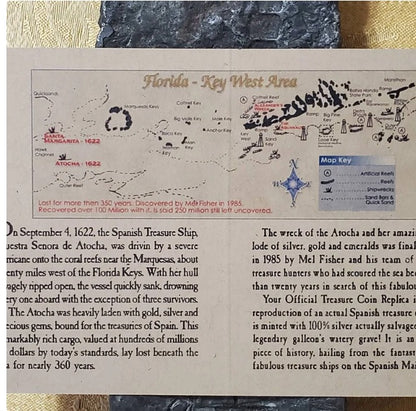 Florida - Key West Area
Quicksands
Marquesas Keys
Cottrell Key
Cottrell Reef
Bahia Honda
State Park
Marathon
Big Mule Key
Mule Key
Ramp
Big Pine
Key
SANTA
MARGARITA - 1622
Boca Key
Man Key
Anchor Key
Hawk
Channel
ATOCHA - 1622
Outer Reef
Map Key
Artificial Reefs
Reefs
Shipwrecks
Sand Bars &
Quick Sand
Lost for more then 350 years. Discovered by Mel Fisher in 1985.
Recovered over 100 Million with it. Is said 250 million still left uncovered.
On September 4, 1622, the Spanish Treasure Ship,
uestra Senora de Atocha, was drivin by a severe
rricane onto the coral reefs near the Marquesas, about
enty miles west of the Florida Keys. With her hull
vagely ripped open, the vessel quickly sank, drowning
ery one aboard with the exception of three survivors.
The Atocha was heavily laden with gold, silver and
ecious gems, bound for the treasuries of Spain. This
markably rich cargo, valued at hundreds of millions
dollars by today's standards, lay lost beneath the
a for nearly 360 years.
The wreck of the Atocha and her amazin
lode of silver, gold and emeralds was final
in 1985 by Mel Fisher and his team of
treasure hunters who had scoured the sea be
than twenty years in search of this fabulou
Your Official Treasure Coin Replica i
reproduction of an actual Spanish treasure c
is minted with 100% silver actually salvage
legendary galleon's watery grave! It is an
piece of history, hailing from the fantas
fabulous treasure ships on the Spanish Mai